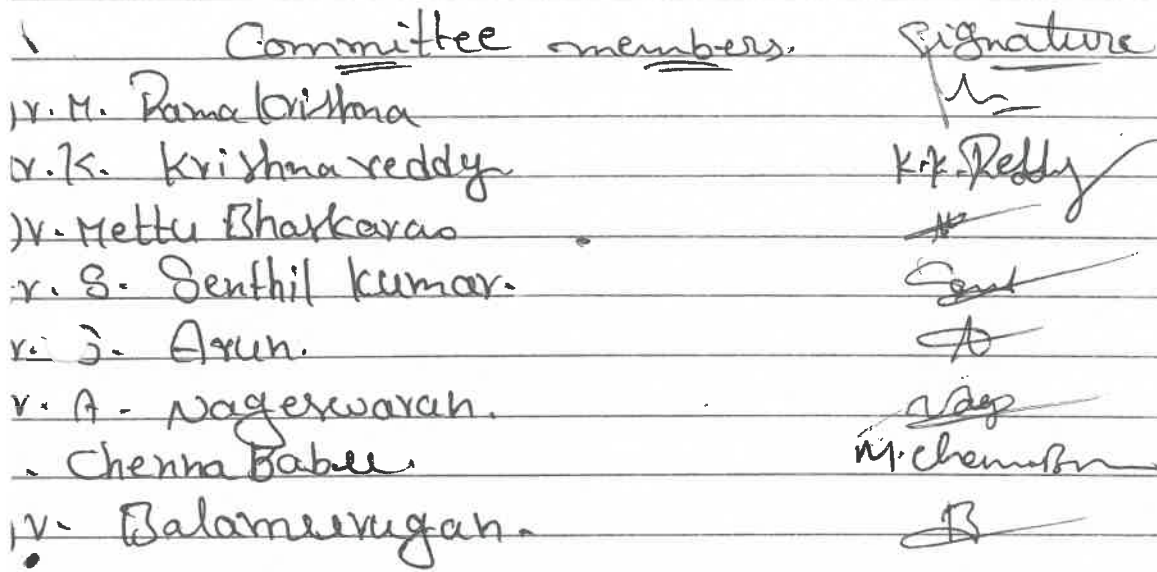 Committee members. Signature
r. M. Rama krishna
r. K. Krishna reddy K.K. Reddy
r. Mettu Bhaskarao
r. S. Senthil kumar. Sent
r. J. Arun. A
r. A - Nageswaran. Nag
. Chenna Babu. M. Chenna
r. Balamurugan. B